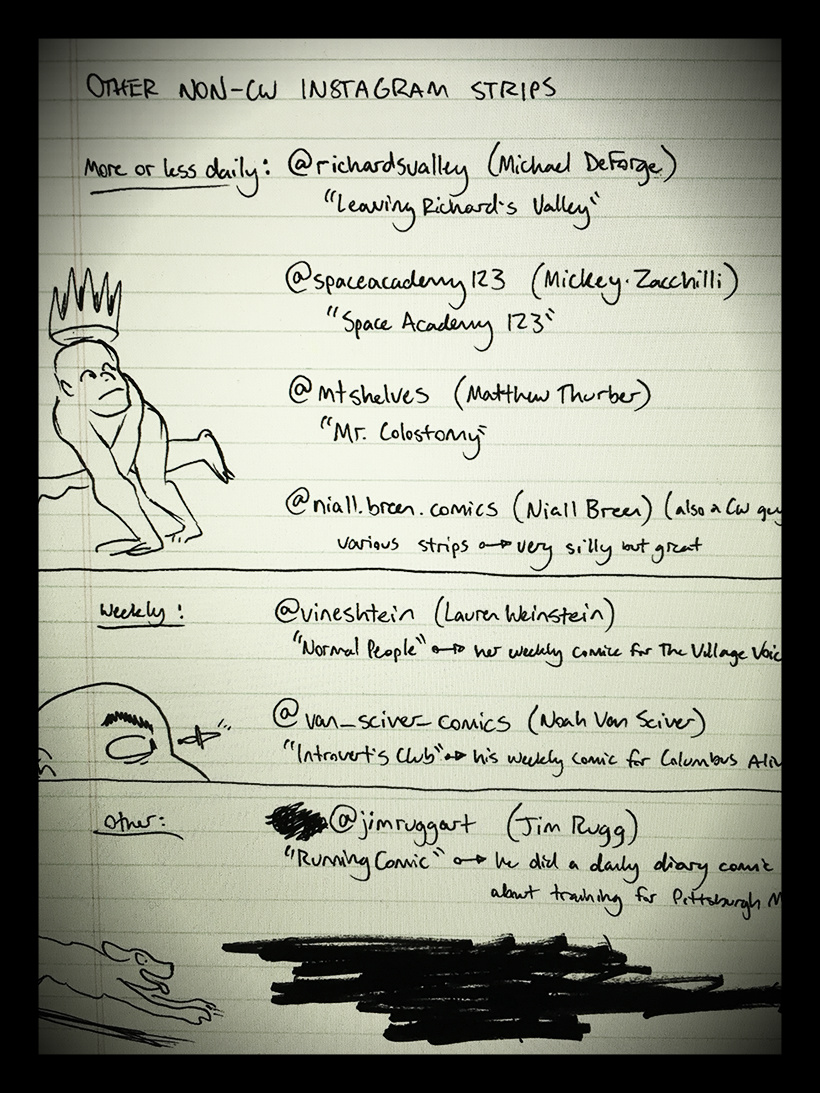 OTHER NON-CW INSTAGRAM STRIPS
More or less daily: @richardsvalley (Michael DeForge)
"Leaving Richard's Valley"
@spaceacademy123 (Mickey Zacchilli)
"Space Academy 123"
@mtshelves (Matthew Thurber)
"Mr. Colostomy"
@niall.breen.comics (Niall Breen) (also a CW guy
various strips → very silly but great
Weekly: @vineshtein (Lauren Weinstein)
"Normal People" → her weekly comic for The Village Voic
@van_sciver_comics (Noah Van Sciver)
"Introvert's Club" → his weekly comic for Columbus Aliv
Other: @jimruggart (Jim Rugg)
"Running Comic" → he did a daily diary comic
about training for Pittsburgh M